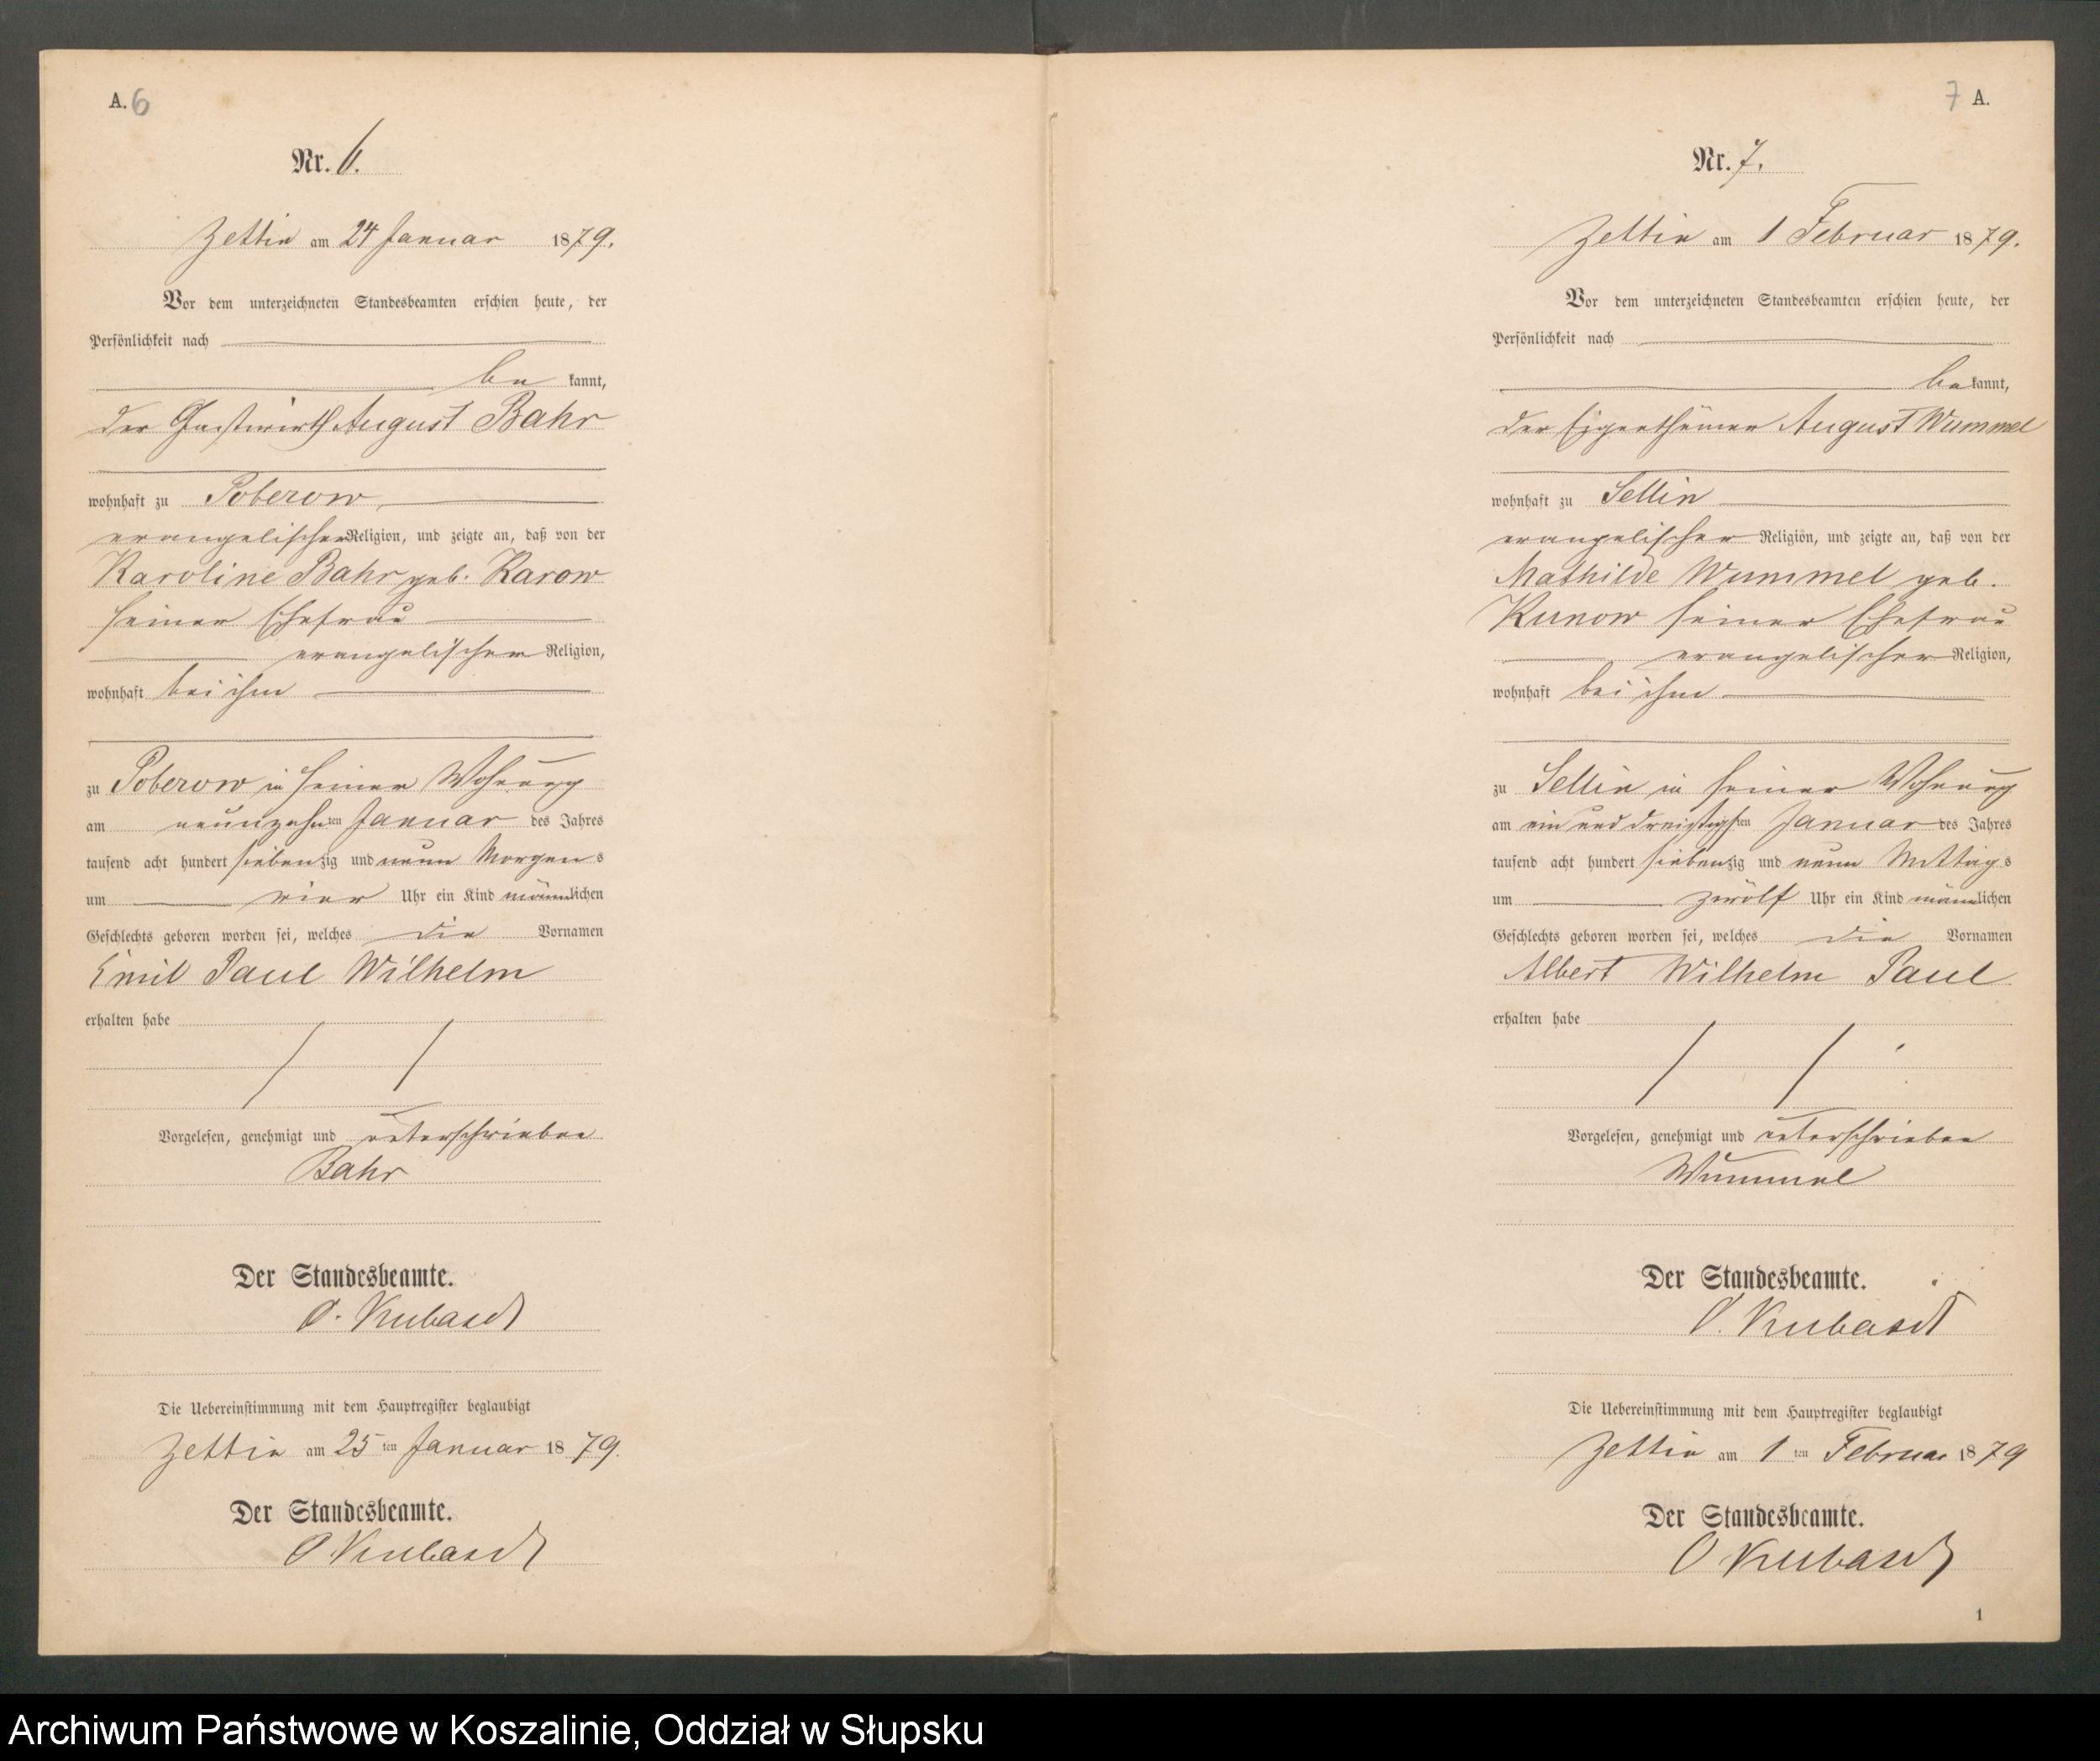 A. 6
Nr. 6.
Zettin am 24 Januar 1879.
Vor dem unterzeichneten Standesbeamten erschien heute, der
Persönlichkeit nach
be kannt,
der Gastwirth August Bahr
wohnhaft zu Poberow,
evangelischer Religion, und zeigte an, daß von der
Karoline Bahr geb. Karow
seiner Ehefrau
evangelischer Religion,
wohnhaft bei ihm
zu Poberow in seiner Wohnung
am neunzehnten Januar des Jahres
tausend acht hundert siebenzig und neun Morgens
um vier Uhr ein Kind männlichen
Geschlechts geboren worden sei, welches die Vornamen
Emil Paul Wilhelm
erhalten habe
Vorgelesen, genehmigt und unterschrieben
Bahr
Der Standesbeamte.
O. Kubasch
Die Uebereinstimmung mit dem Hauptregister beglaubigt
Zettin am 25 ten Januar 1879.
Der Standesbeamte.
O Kubasch
7 A.
Nr. 7.
Zettin am 1 Februar 1879.
Vor dem unterzeichneten Standesbeamten erschien heute, der
Persönlichkeit nach
be kannt,
der Eigenthümer August Wummel
wohnhaft zu Sellin
evangelischer Religion, und zeigte an, daß von der
Mathilde Wummel geb.
Kunow seiner Ehefrau
evangelischer Religion,
wohnhaft bei ihm
zu Sellin in seiner Wohnung
am ein und dreißigsten Januar des Jahres
tausend acht hundert siebenzig und neun Mittags
um zwölf Uhr ein Kind männlichen
Geschlechts geboren worden sei, welches die Vornamen
Albert Wilhelm Paul
erhalten habe
Vorgelesen, genehmigt und unterschrieben
Wummel
Der Standesbeamte.
O. Kubasch
Die Uebereinstimmung mit dem Hauptregister beglaubigt
Zettin am 1 ten Februar 1879
Der Standesbeamte.
O Kubasch
1
Archiwum Państwowe w Koszalinie, Oddział w Słupsku